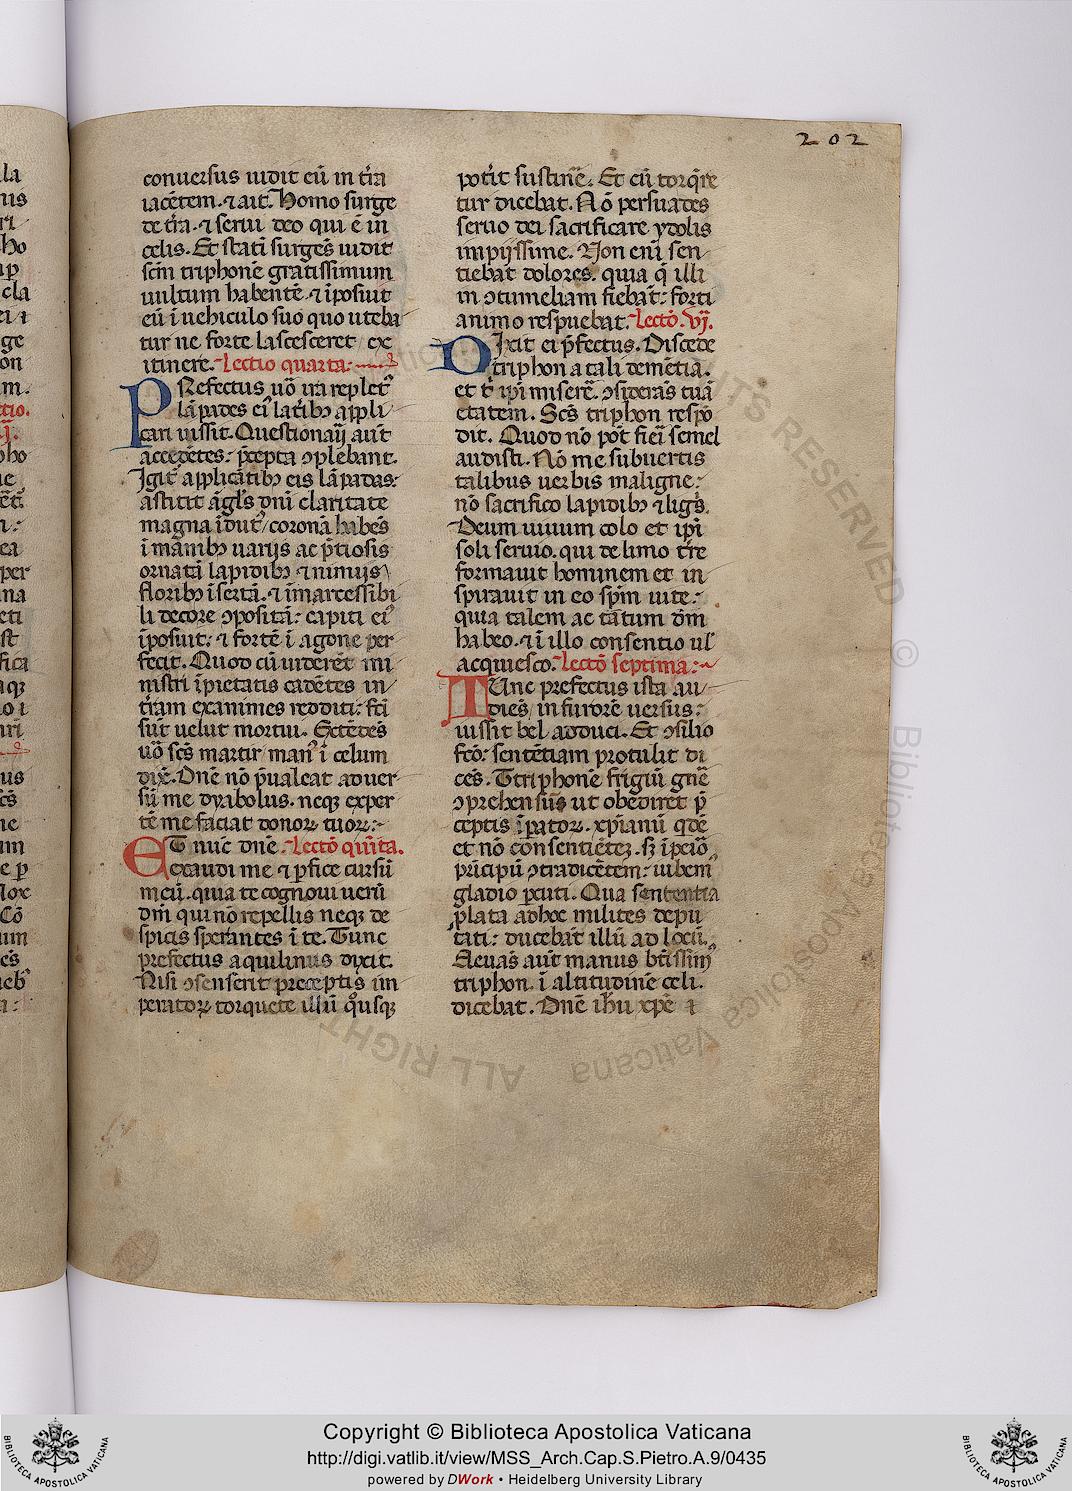 202
conuersus uidit eũ in tr̃a
iacẽtem. ⁊ ait. Homo surge
de tr̃a. ⁊ serui deo qui ẽ in
celis. Et stati surgẽs uidit
scm̃ triphonẽ gratissimum
uultum habentẽ. ⁊ ĩposuit
eũ ĩ uehiculo suo quo uteba
tur ne forte lascesceret ex
itinere. Lectio quarta:
PRefectus uõ ira replet᾽
lãpades ei᾽ laterib᾽ appli
cari iussit. Questionarij aut̃
accedẽtes: p̃cepta ↄplebant.
Igit᾽ applicãtib᾽ eis lãpadas:
astitit ãgl̃s dñi claritate
magna ĩdut᾽ coronã habẽs
ĩ manib᾽ uarijs ac p̃tiosis
ornatã lapidib᾽ ⁊ nimijs
floribus ĩsertã. ⁊ ĩmarcessibi
li decore ↄpositã: capiti ei᾽
ĩposuit: ⁊ fortẽ ĩ agone per
fecit. Quod cũ uiderẽt mi
nistri ĩpietatis cadẽtes in
tr̃am exanimes redditi: fc̃i
sũt uelut mortui. Extẽdẽs
uõ sc̃s martir man᾽ ĩ celum
dixẽ. Dñe nõ p̃ualeat aduer
sũ me dyabolus. neqꝫ exper
tẽ me faciat donoꝝ tuoꝝ:
ET nũc dñe. Lectõ quĩta.
exaudi me ⁊ ꝑfice cursũ
meũ. quia te cognoui uerũ
dm̃ qui nõ repellis neqꝫ de
spicis sperantes ĩ te. Tunc
prefectus aquilinus dixit.
Nisi ↄsenserit preceptis im
peratoꝝ torquete illũ qͦusqꝫ
pot̃it sustinẽ. Et cũ torqr̃e
tur dicebat. Nõ persuades
seruo dei sacrificare ydolis
impijssime. Non eni sen
tiebat dolores. quia q̃ illi
in ↄtumeliam fiebãt: forti
animo respuebat. Lectõ. vj.
DIxit ei p̃fectus. Discede
triphon a tali demẽtia.
et t᾽ ip̃i miserẽ. ↄsiderãs tuã
etatem. Scs̃ triphon respõ
dit. Quod nõ pot̃ fieri semel
audisti. Nõ me subuertis
talibus uerbis maligne:
nõ sacrifico lapidib᾽ ⁊ lignis.
Deum uiuum colo et ip̃i
soli seruio. qui de limo tr̃e
formauit hominem et in
spirauit in eo spm̃ uite:
quia talem ac tãtum dm̃
habeo. ⁊ ĩ illo consentio ul᾽
acquiesco. Lectõ septima:
TUnc prefectus ista au
diẽs in furorẽ uersus:
iussit bel adduci. Et ↄsilio
fc̃o: sentẽtiam protulit di
cẽs. Ttriphonẽ frigiũ gñe
ↄprehensũ ut obediret p̃
ceptis ĩꝑatoꝝ. xp̃ianũ qdẽ
et nõ consentiẽteꝫ. sꝫ ĩpeiõ
prĩcipũ ↄtradicẽtem: iubem᾽
gladio ꝑcuti. Qua sententia
plata adhoc milites depu
tati: ducebãt illũ ad locũ.
Eleuãs aut̃ manus bt̃issim᾽
triphon. ĩ altitudinẽ celi.
dicebat. Dñe ih̃u xp̃e a
© Biblioteca Apostolica Vaticana
ALL RIGHTS RESERVED
BIBLIOTECA APOSTOLICA VATICANA
Copyright © Biblioteca Apostolica Vaticana
http://digi.vatlib.it/view/MSS_Arch.Cap.S.Pietro.A.9/0435
powered by DWork • Heidelberg University Library
BIBLIOTECA APOSTOLICA VATICANA